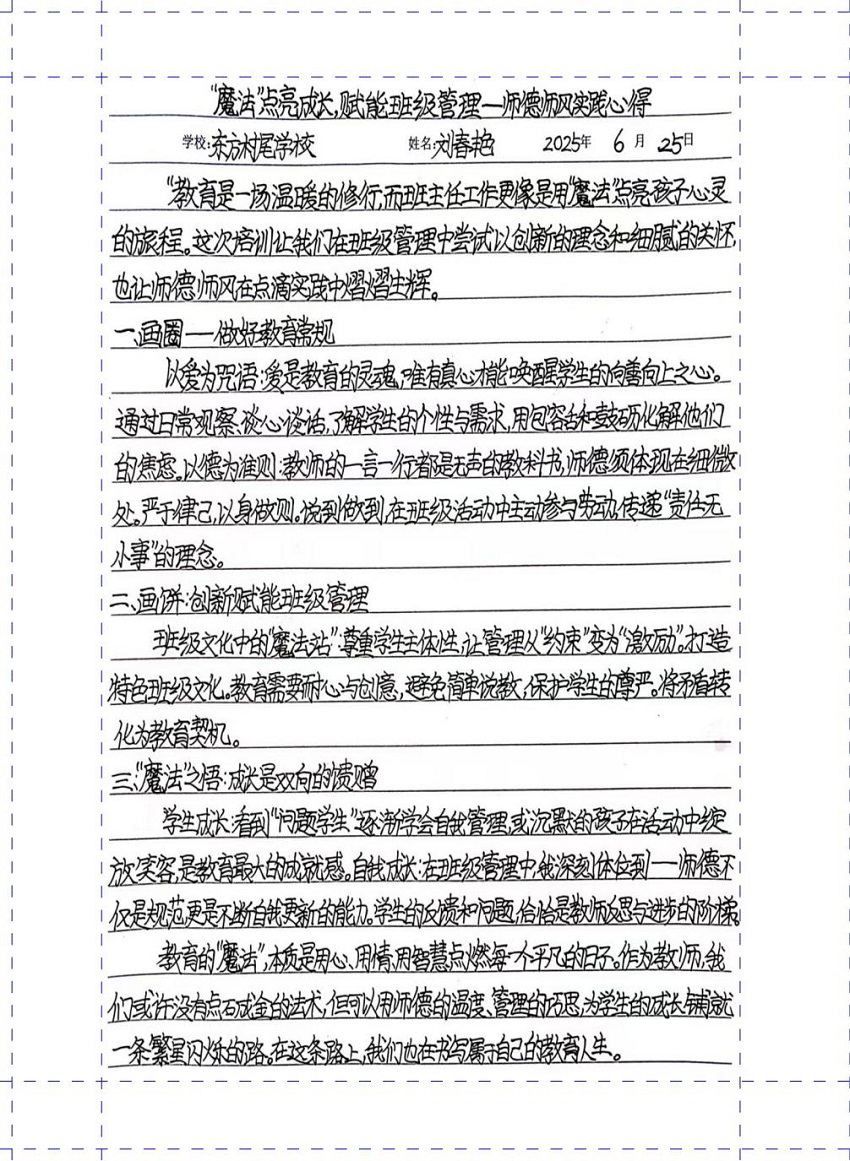 “魔法”点亮成长,赋能班级管理—师德师风实践心得
学校:东方村尾学校 姓名:刘春艳 2025年 6 月 25日
“教育是一场温暖的修行,而班主任工作更像是用“魔法”点亮孩子心灵
的旅程。这次培训让我们在班级管理中尝试以创新的理念和细腻的关怀,
也让师德师风在点滴实践中熠熠生辉。
一、画圈——做好教育常规
以爱为咒语:爱是教育的灵魂,唯有真心才能唤醒学生的向善向上之心。
通过日常观察、谈心谈话,了解学生的个性与需求,用包容和鼓励化解他们
的焦虑。以德为准则:教师的一言一行都是无声的教科书,师德须体现在细微
处。严于律己,以身做则。说到做到,在班级活动中主动参与劳动,传递“责任无
小事”的理念。
二、画饼:创新赋能班级管理
班级文化中的“魔法站”:尊重学生主体性,让管理从“约束”变为“激励”。打造
特色班级文化。教育需要耐心与创意,避免简单说教,保护学生的尊严。将矛盾转
化为教育契机。
三、“魔法”之悟:成长是双向的馈赠
学生成长:看到“问题学生”逐渐学会自我管理,或沉默的孩子在活动中绽
放笑容,是教育最大的成就感。自我成长:在班级管理中,我深刻体位到——师德不
仅是规范更是不断自我更新的能力。学生的反馈和问题,恰恰是教师反思与进步的阶梯。
教育的“魔法”,本质是用心、用情、用智慧点燃每一个平凡的日子。作为教师,我
们或许没有点石成金的法术,但可以用师德的温度、管理的巧思,为学生的成长铺就
一条繁星闪烁的路。在这条路上,我们也在书写属于自己的教育人生。